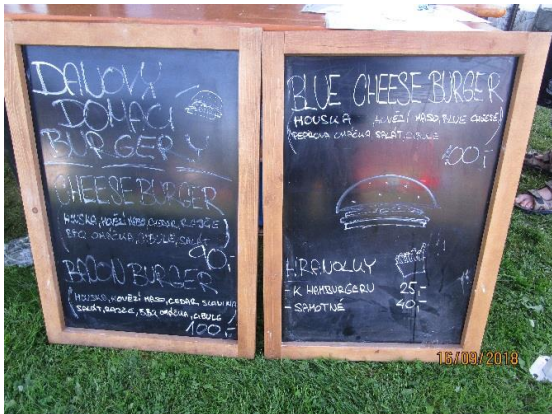 DAVOVY
DOMACI
BURGERY
CHEESEBURGER
(HOUSKA, HOVĚZÍ MASO, CHEDAR, RAJČE
BBQ OMÁČKA, CIBULE, SALÁT)
90,-
BACON BURGER
(HOUSKA, HOVĚZÍ MASO, CEDAR, SLANINA
SALÁT, RAJČE, BBQ OMÁČKA, CIBULE)
100,-
BLUE CHEESE BURGER
HOUSKA HOVĚZÍ MASO, BLUE CHEESE
OMÁČKA, SALÁT, CIBULE)
100,-
HRANOLKY
- K HAMBURGERU 25,-
- SAMOTNÉ 40,-
15/09/2018